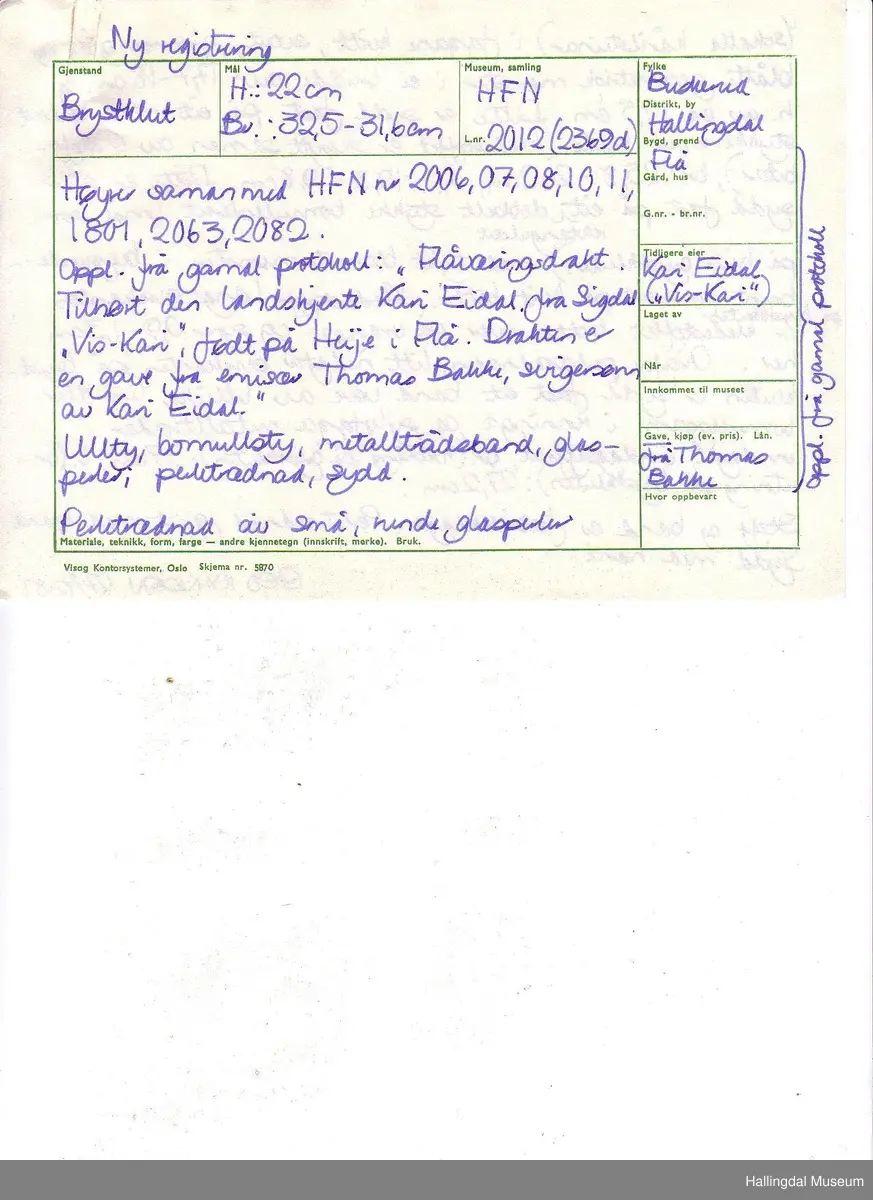 Ny registrering
Gjenstand
Brystklut
Mål
H.: 22cm
Br.: 32,5-31,6cm
Museum, samling
HFN
L.nr. 2012 (2369d)
Fylke
Buskerud
Distrikt, by
Hallingdal
Bygd, grend
Flå
Gård, hus
G.nr. - br.nr.
Tidligere eier
Kari Eidal
("Vis-Kari")
Laget av
Når
Innkommet til museet
Gave, kjøp (ev. pris). Lån.
frå Thomas
Bakke
Hvor oppbevart
Oppl. frå gamal protokoll
Høyrer saman med HFN nr 2006, 07, 08, 10, 11,
1801, 2063, 2082.
Oppl. frå gamal protokoll: "Flåværingsdrakt.
Tilhørt den landskjente Kari Eidal fra Sigdal
"Vis-Kari", født på Heije i Flå. Drakten er
en gave fra emisær Thomas Bakke, svigersønn
av Kari Eidal."
Ullty, bomullsty, metalltrådsband, glas-
perler, perletrædnad, sydd.
Perletrædnad av små, runde glasperler
Materiale, teknikk, form, farge — andre kjennetegn (innskrift, merke). Bruk.
Visag Kontorsystemer, Oslo Skjema nr. 5870
Hallingdal Museum